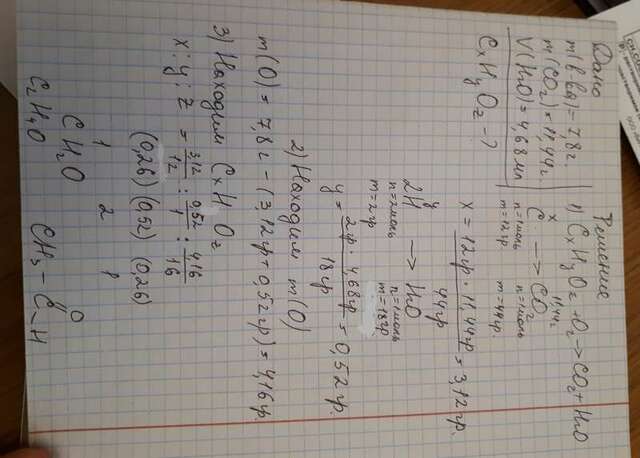 Дано
m(в-ва)=7,8г
m(CO₂)=11,44г.
V(H₂O)=4,68мл
CxHyOz-?
Решение
1) CxHyOz+O₂→CO₂+H₂O
x 11,44г
C → CO₂
n=1моль n=1моль
m=12гр m=44гр.
x = 12гр · 11,44гр / 44гр = 3,12гр.
y
2H → H₂O
n=2моль n=1моль
m=2гр m=18гр
y = 2гр · 4,68гр / 18гр = 0,52гр.
2) Находим m(O)
m(O) = 7,8г-(3,12гр+0,52гр)=4,16гр.
3) Находим CxHyOz
x:y:z = 3,12/12 : 0,52/1 : 4,16/16
(0,26) (0,52) (0,26)
1 2 1
CH₂O
C₂H₄O CH₃-C-H
O